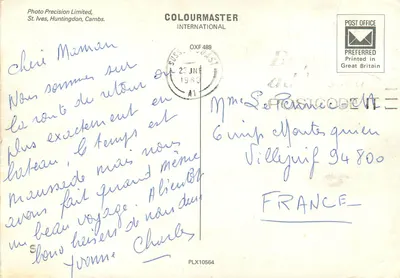 Photo Precision Limited,
St. Ives, Huntingdon, Cambs.
COLOURMASTER
INTERNATIONAL
OXF 488
POST OFFICE
PREFERRED
Printed in
Great Britain
Chère Maman
Nous sommes sur
la route de retour ou
plus exactement en
bateau, le temps est
maussade mais nous
avons fait quand même
un beau voyage. A bientôt
bons baisers de nous deux
Yvonne Charles
Mme
6 imp Montesquieu
Villejuif 94800
FRANCE
PLX10564